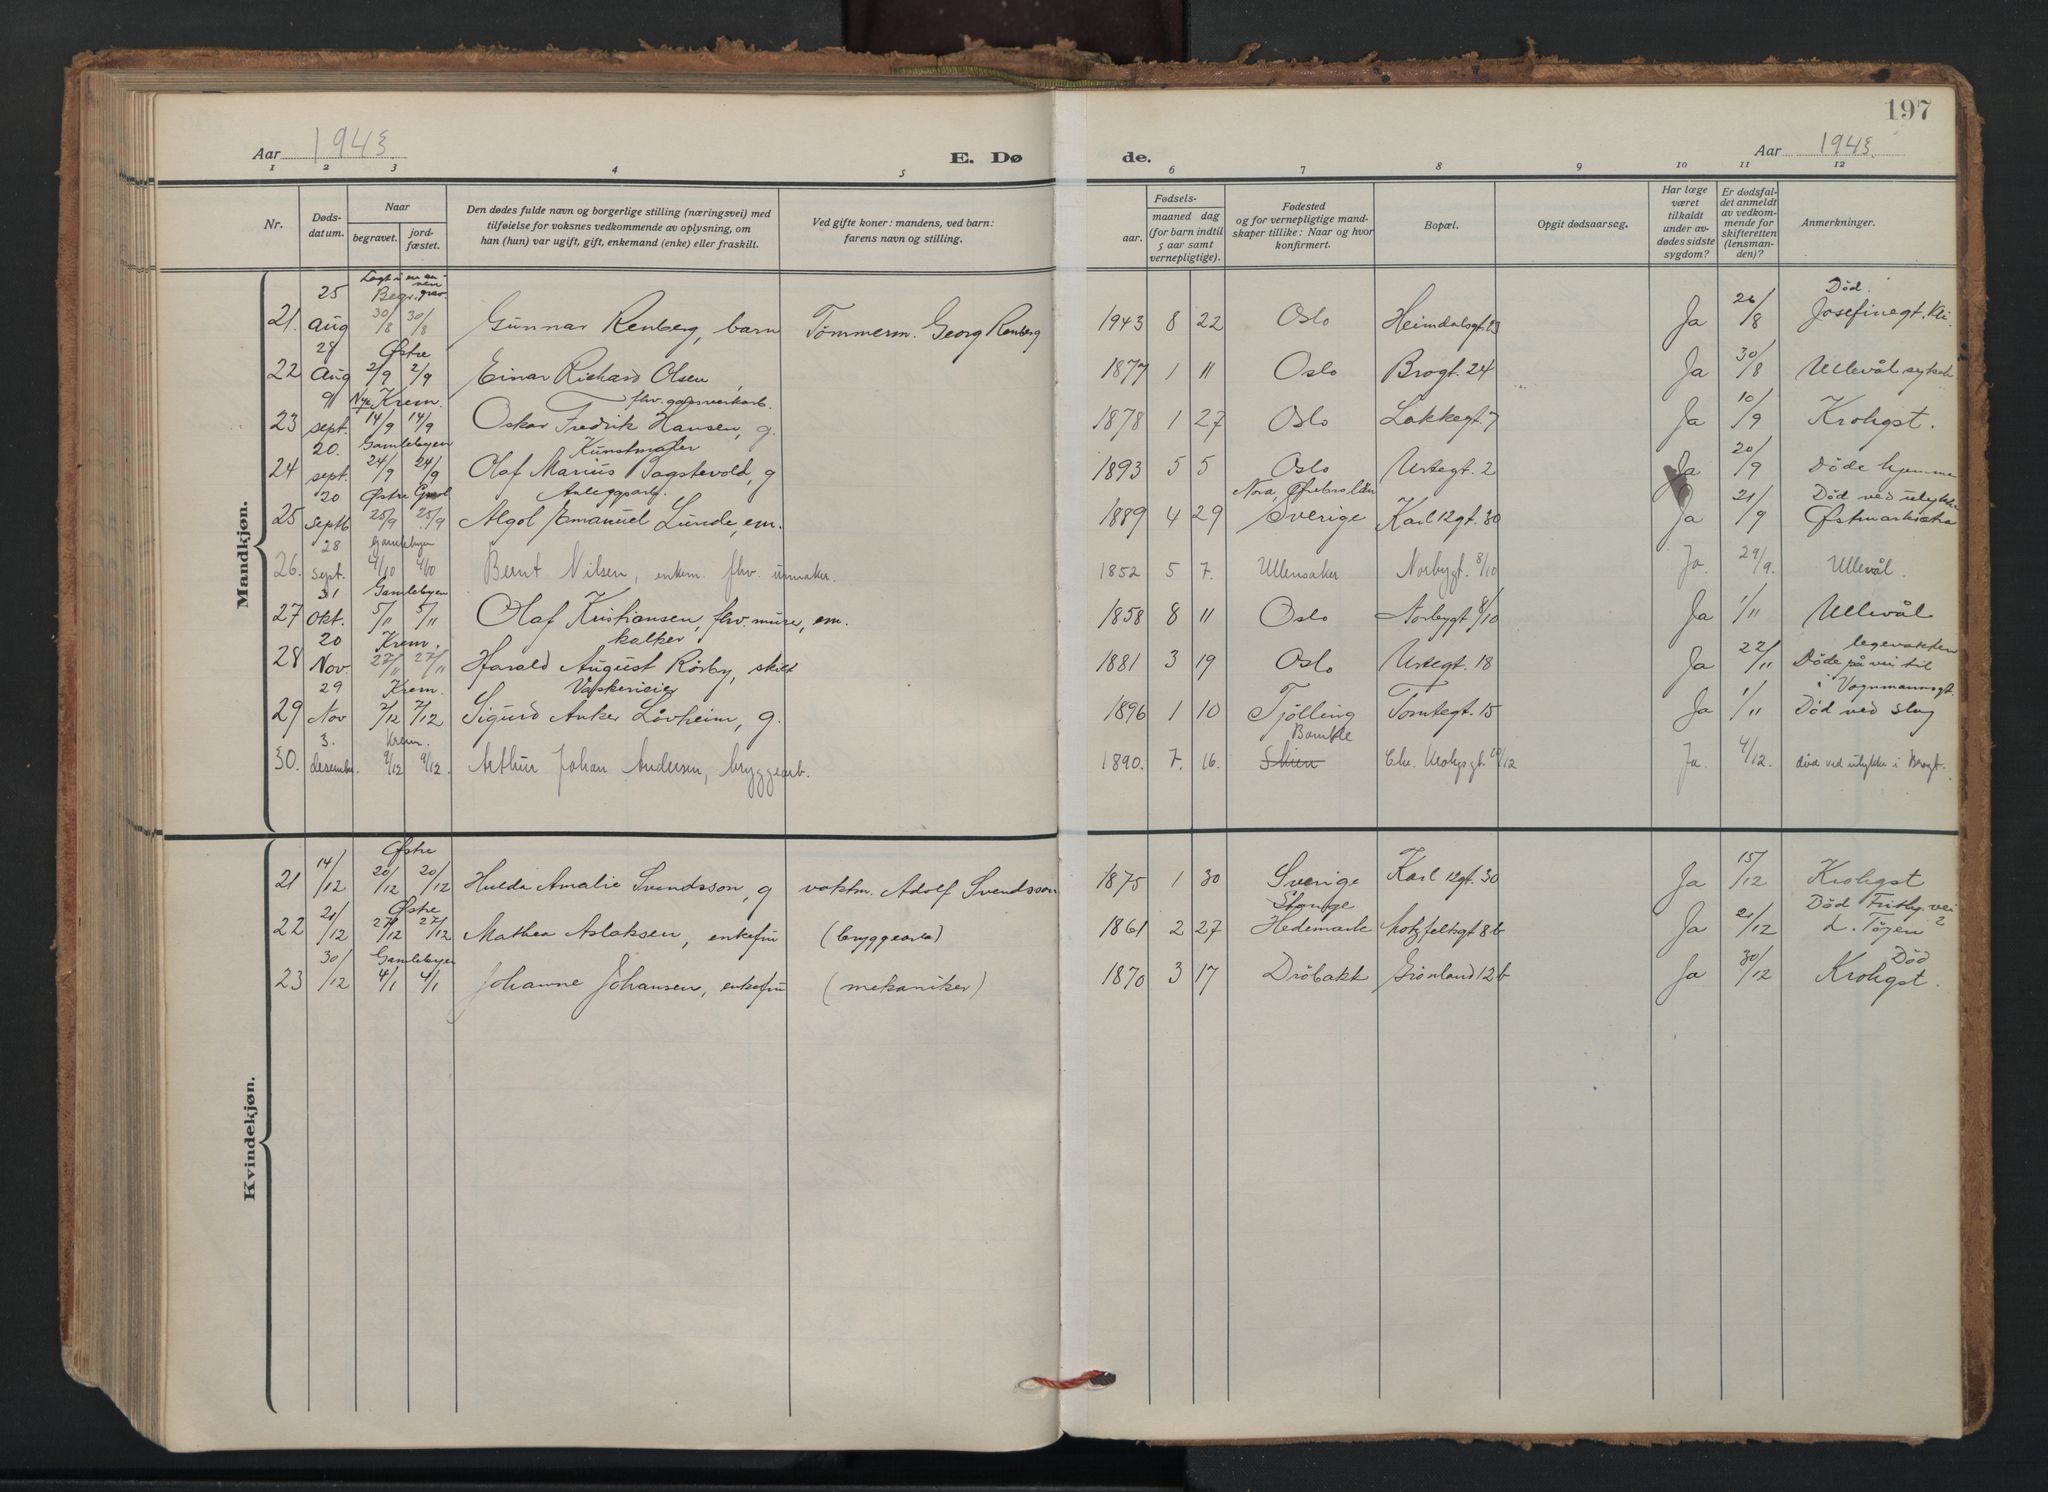 197
Aar 1943
E. Dø
de.
Aar 1943.
1 2 3 4 5 6 7 8 9 10 11 12
Nr.
Døds-
datum.
Naar
begravet.
jord-
fæstet.
Den dødes fulde navn og borgerlige stilling (næringsvei) med
tilføielse for voksnes vedkommende av oplysning, om
han (hun) var ugift, gift, enkemand (enke) eller fraskilt.
Ved gifte koner: mandens, ved barn:
farens navn og stilling.
Fødsels-
aar.
maaned dag
(for barn indtil
5 aar samt
vernepligtige).
Fødested
og for vernepligtige mand-
skaper tillike: Naar og hvor
konfirmert.
Bopæl.
Opgit dødsaarsag.
Har læge
været
tilkaldt
under av-
dødes sidste
sygdom?
Er dødsfal-
det anmeldt
av vedkom-
mende for
skifteretten
(lensman-
den)?
Anmerkninger.
Mandkjøn.
Lagt i en an-
nen grav.
25 Begr. Død.
21. Aug 30/8 30/8 Gunnar Renberg, barn Tømmerm. Georg Renberg 1943 8 22 Oslo Heimdalsgt. 23 Ja 26/8 Josefinegt. Kli.
28 Østre
22 Aug 2/9 2/9 Einar Richard Olsen, 1877 1 11 Oslo Brogt. 24 Ja 30/8 Ullevål sykeh
9 Nye Krem. fhv. gassverkarb.
23 sept. 14/9 14/9 Oskar Fredrik Hansen, g. 1878 1 27 Oslo Lakkegt. 7 Ja 10/9 Krohgst.
20. Gamlebyen Kunstmaler
24 sept. 24/9 24/9 Olaf Marius Sagstevold, g 1893 5 5 Oslo Urtegt. 2 Ja 20/9 Døde hjemme
20 Østre Anleggsarb. Nora, Ørebro län Død ved ulykke
25 septb 25/9 25/9 Algot Emanuel Lunde, em. 1889 4 29 Sverige Karl 12gt. 30 Ja 21/9 Østmarksetra
28 Gamlebyen
26. sept. 4/10 4/10 Bernt Nilsen, enkem. fhv. urmaker. 1852 5 7. Ullensaker Norbygt. 8/10 Ja. 29/9. Ullevål.
31 Gamlebyen
27 Okt. 5/11 5/11 Olaf Kristiansen, fhv. murer, em. 1858 8 11 Oslo Norbygt 8/10 Ja 1/11 Ullevål
20 Krem. kalker legevakten
28 Nov. 27/11 27/11 Harald August Rørby, skilt 1881 3 19 Oslo Urtegt. 18 Ja 22/11 Døde på vei til
29 Krem. Vaskerieier i Vognmannsgt.
29 Nov 7/12 7/12 Sigurd Anker Løvheim, g. 1896 1 10 Tjølling Tomtegt. 15 Ja 1/11 Død ved slag
3. Krem. Bamble
30. desember 9/12 9/12. Arthur Johan Andersen, bryggearb. 1890. 7. 16. Skien Chr. Krohgsgt. Ja. 4/12. død ved ulykke i Brogt.
Kvindekjøn.
Østre
21 14/12 20/12 20/12 Hulda Amalie Svendsson, g vaktm. Adolf Svendsson 1875 1 30 Sverige Karl 12gt. 30 Ja 15/12 Krohgst
Østre Stange Død
22 21/12 27/12 27/12 Mathea Aslaksen, enkefru (bryggearb) 1861 2 27 Hedemark Hotzfeltsgt 8b Ja 21/12 L. Tøyen
Gamlebyen Død
23 30/12 4/1 4/1 Johanne Johansen, enkefru (mekaniker) 1870 3 17 Drøbakk Grønland 12b Ja 30/12 Krohgst.